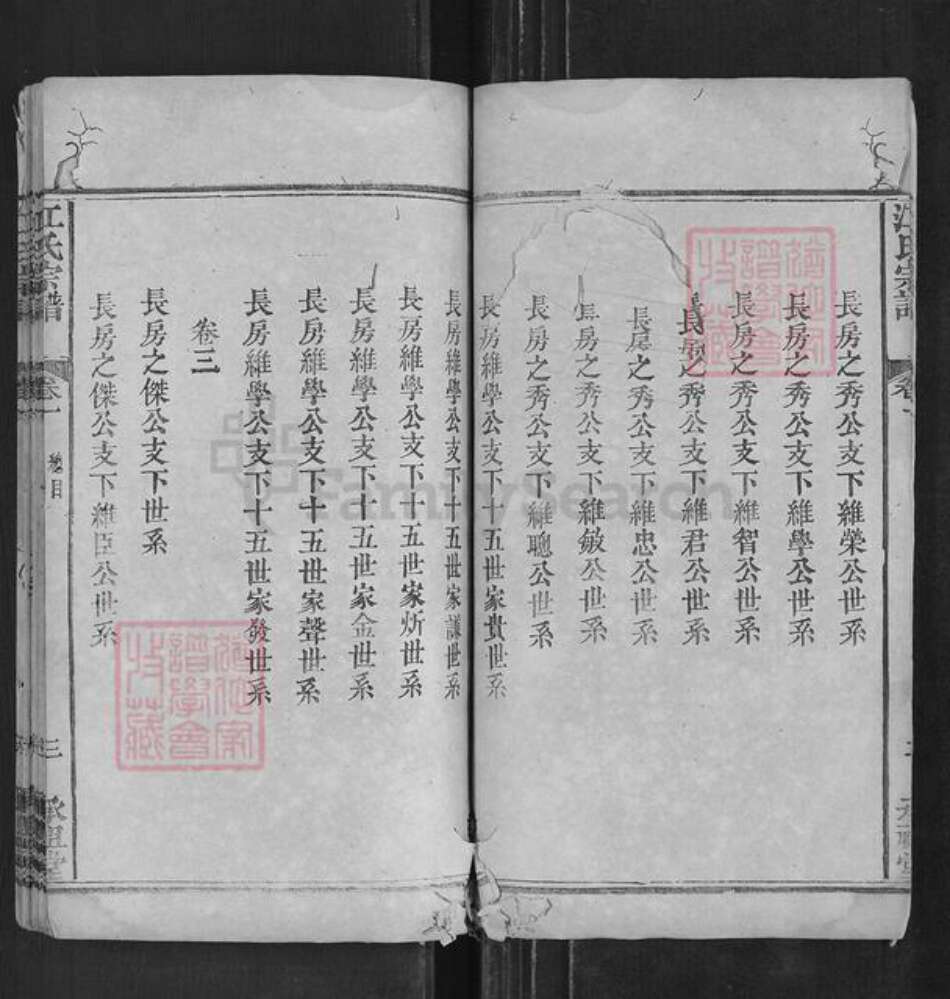 江氏宗譜
卷一
長房之秀公支下維榮公世系
長房之秀公支下維學公世系
長房之秀公支下維智公世系
長房之秀公支下維君公世系
長房之秀公支下維忠公世系
長房之秀公支下維敏公世系
長房之秀公支下維聰公世系
長房維學公支下十五世家貴世系
長房維學公支下十五世家謙世系
長房維學公支下十五世家炘世系
長房維學公支下十五世家金世系
長房維學公支下十五世家聲世系
長房維學公支下十五世家發世系
卷三
長房之傑公支下世系
長房之傑公支下維臣公世系
江氏宗譜
卷一
總目
三
譜學會
收藏
譜學會
收藏
FamilySearch